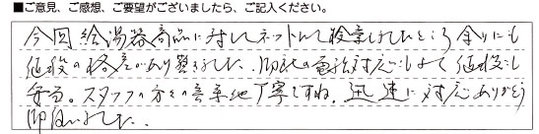 ■ご意見、ご感想、ご要望がございましたら、ご記入ください。
今回給湯器商品に対してネットにて検索しましたところ余りにも
値段の格差があり驚きました。御社の電話対応もよく値段も
スタッフの方々の 丁寧ですね。迅速に対応ありがとう
御座いました。